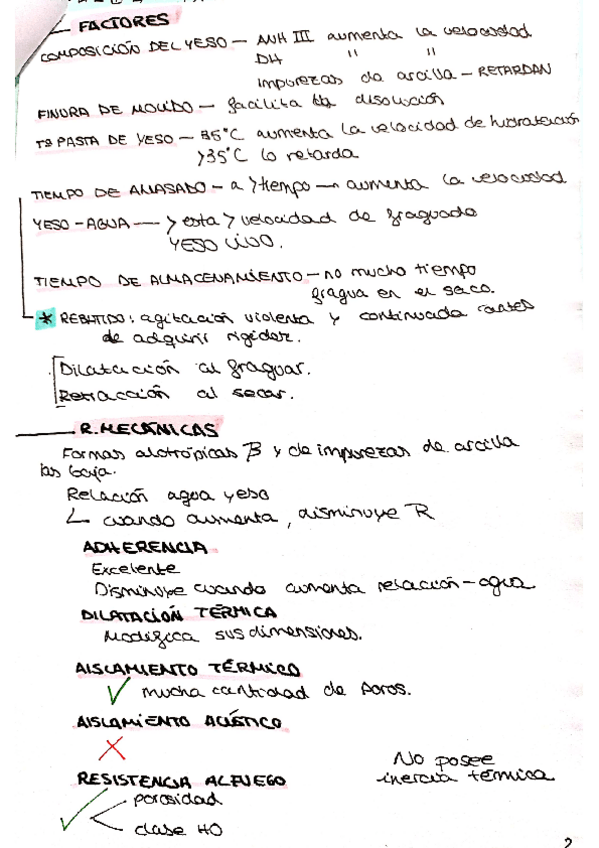 FACTORES
COMPOSICIÓN DEL YESO — ANH III aumenta la velocidad
DH " "
impurezas da arcilla — RETARDAN
FINURA DE MOLIDO — facilita la disolución
Tª PASTA DE YESO — 35°C aumenta la velocidad de hidratación
>35°C lo retarda
TIEMPO DE AMASADO — a > tiempo — aumenta la velocidad
YESO - AGUA — > esta > velocidad de fraguado
YESO VIVO.
TIEMPO DE ALMACENAMIENTO — no mucho tiempo
fragua en el saco.
* REBATIDO: agitación violenta y continuada antes
de adquirir rigidez.
Dilatación al fraguar.
Retracción al secar.
R. MECÁNICAS
Formas alotrópicas β y de impurezas de arcilla
las baja.
Relación agua yeso
↳ cuando aumenta, disminuye R
ADHERENCIA
Excelente
Disminuye cuando aumenta relación - agua
DILATACIÓN TÉRMICA
Modifica sus dimensiones.
AISLAMIENTO TÉRMICO
✓ mucha cantidad de poros.
AISLAMIENTO ACÚSTICO
X
No posee
inercia térmica
RESISTENCIA AL FUEGO
✓ porosidad
clase M0
2